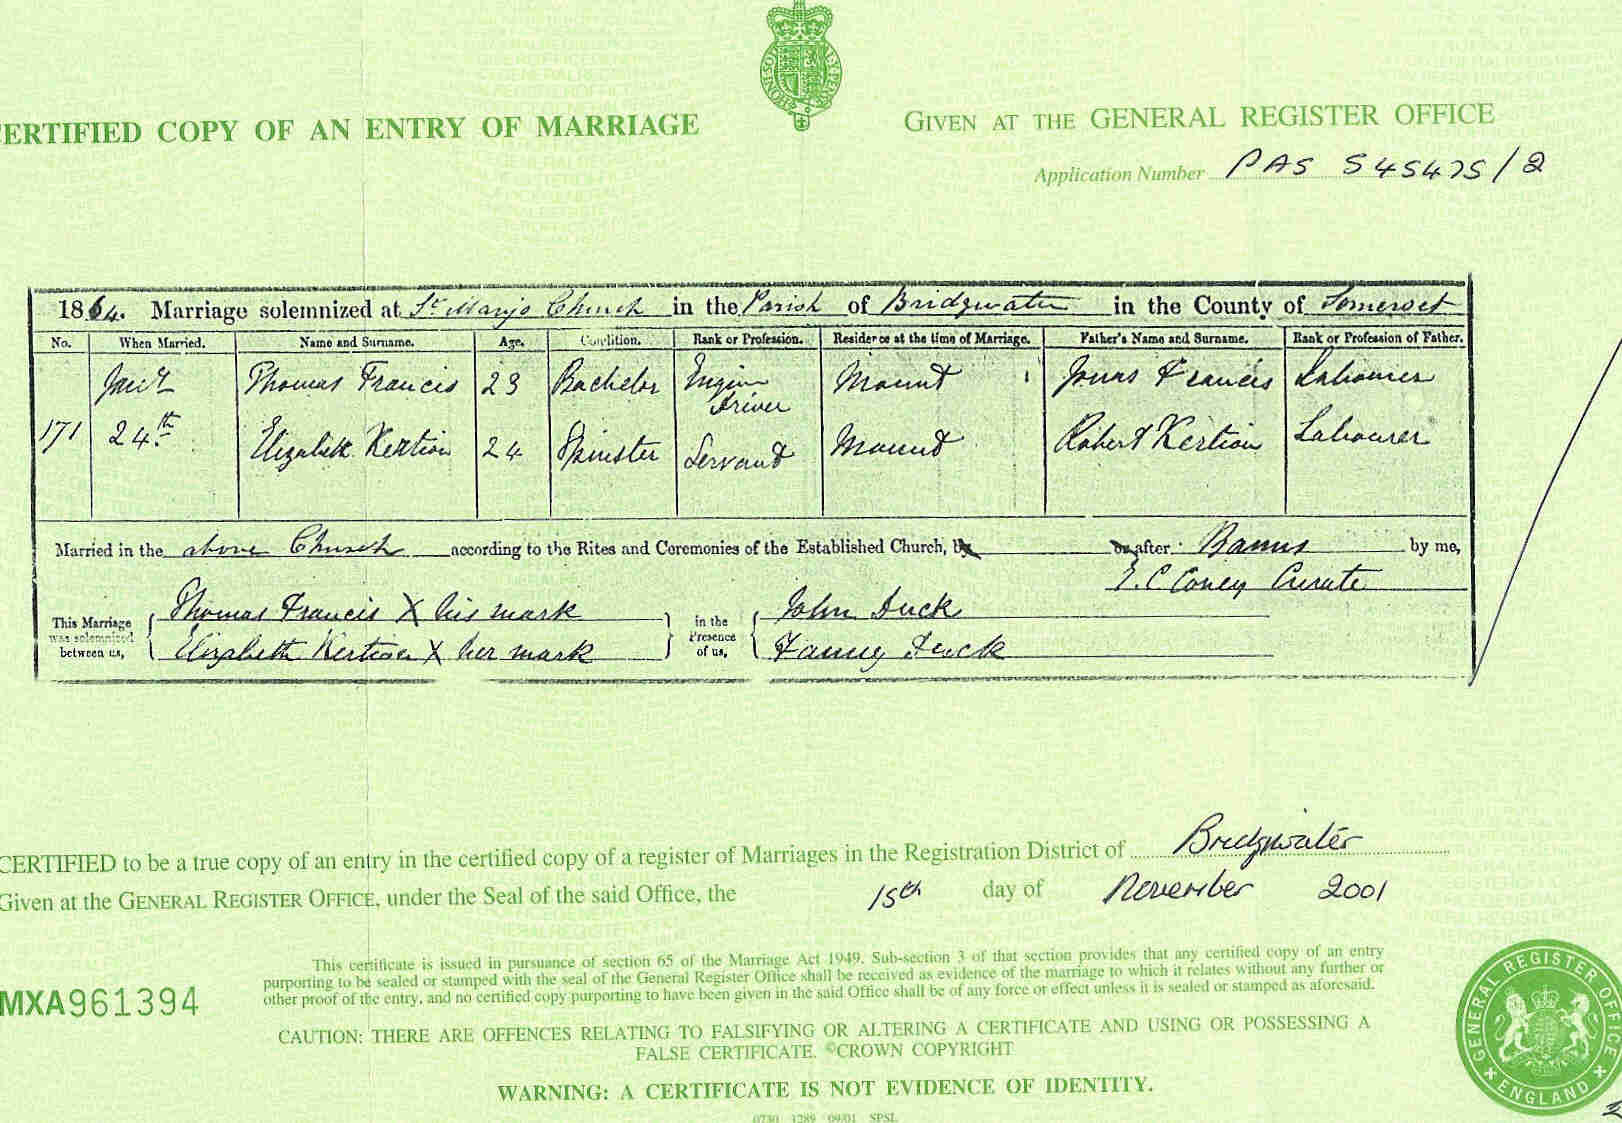 CERTIFIED COPY OF AN ENTRY OF MARRIAGE
GIVEN AT THE GENERAL REGISTER OFFICE
Application Number PAS 545475/2
1864. Marriage solemnized at St Marys Church in the Parish of Bridgwater in the County of Somerset
No. When Married. Name and Surname. Age. Condition. Rank or Profession. Residence at the time of Marriage. Father's Name and Surname. Rank or Profession of Father.
171 Jany 24th
Thomas Francis 23 Bachelor Engine Driver Mount Jonas Francis Labourer
Elizabeth Kertion 24 Spinster Servant Mount Robert Kertion Labourer
Married in the above Church according to the Rites and Ceremonies of the Established Church, by or after Banns by me,
E. C Coney Curate
This Marriage was solemnized between us,
Thomas Francis X his mark
Elizabeth Kertion X her mark
in the Presence of us,
John Duck
Fanny Duck
CERTIFIED to be a true copy of an entry in the certified copy of a register of Marriages in the Registration District of Bridgwater
Given at the GENERAL REGISTER OFFICE, under the Seal of the said Office, the 15th day of November 2001
This certificate is issued in pursuance of section 65 of the Marriage Act 1949. Sub-section 3 of that section provides that any certified copy of an entry
purporting to be sealed or stamped with the seal of the General Register Office shall be received as evidence of the marriage to which it relates without any further or
other proof of the entry, and no certified copy purporting to have been given in the said Office shall be of any force or effect unless it is sealed or stamped as aforesaid.
MXA961394
CAUTION: THERE ARE OFFENCES RELATING TO FALSIFYING OR ALTERING A CERTIFICATE AND USING OR POSSESSING A
FALSE CERTIFICATE. ©CROWN COPYRIGHT
WARNING: A CERTIFICATE IS NOT EVIDENCE OF IDENTITY.
0730 1289 09/01 SPSL
GENERAL REGISTER OFFICE
ENGLAND